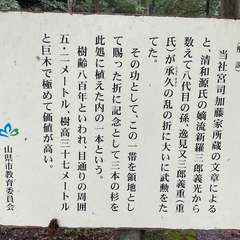 解説
当社宮司加藤家所蔵の文章による
と、清和源氏の嫡流新羅三郎義光から
数えて八代目の孫、逸見又三郎義重(重
氏)が承久の乱の折に大いに武勲をた
てた。
その功として、この一帯を領地とし
て賜った折に記念として三本の杉を
此処に植えた内の一本という。
樹齢八百年といわれ、目通りの周囲
五・二メートル、樹高三十七メートル
と巨木で極めて価値が高い。
山県市教育委員会